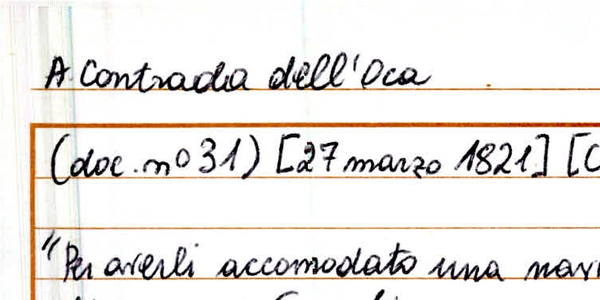 A Contrada dell'Oca
(doc. nº 31) [27 marzo 1821] [C
"Per averli accomodato una